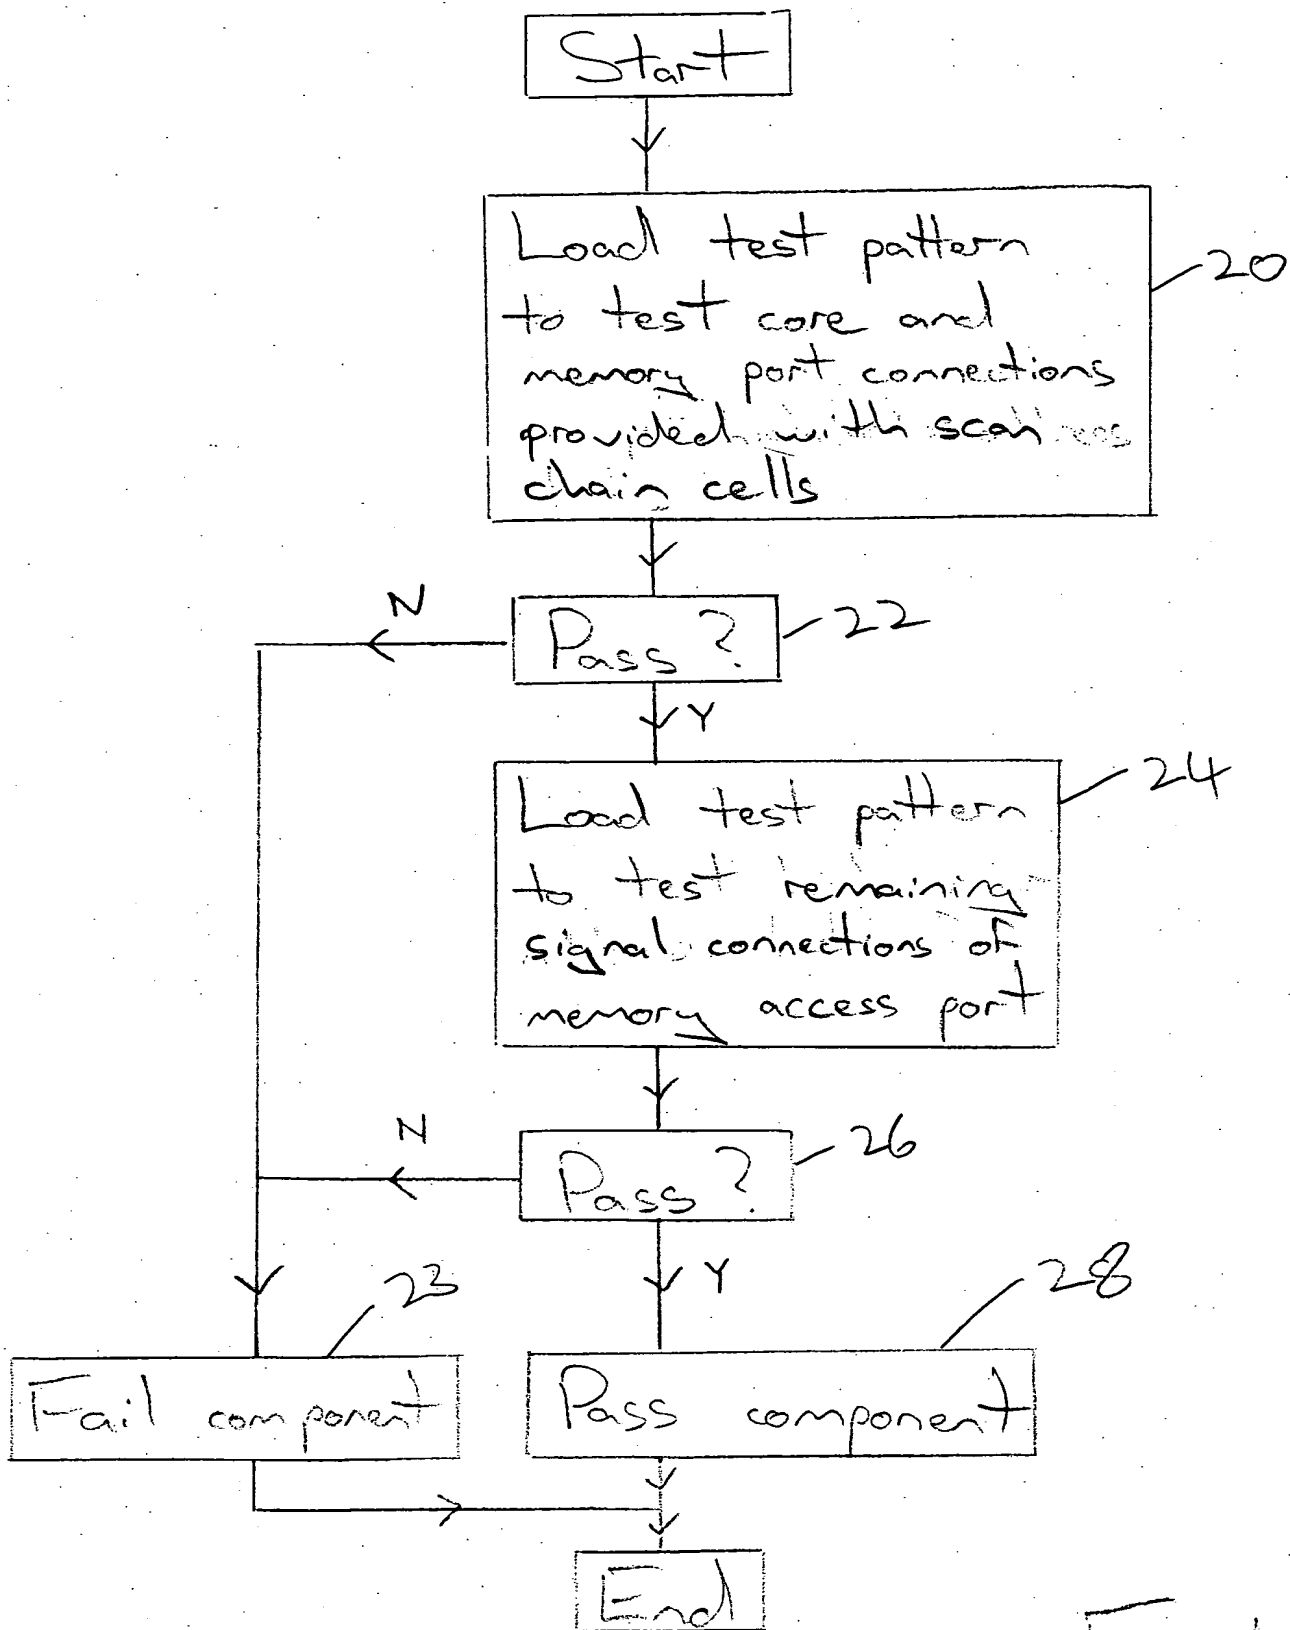 Start
Load test pattern
to test core and
memory port connections
provided with scan
chain cells
20
N
Pass ?
22
Y
Load test pattern
to test remaining
signal connections of
memory access port
24
N
Pass ?
26
Y
23
28
Fail component
Pass component
End